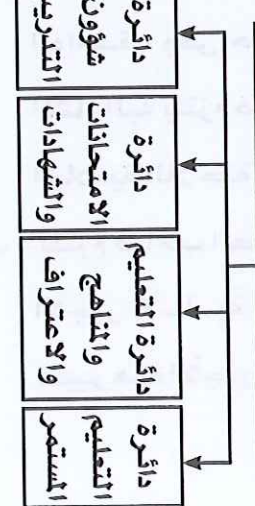 دائرة
شؤون
دائرة
الامتحانات
والشهادات
دائرة التعليم
والمناهج
والاعتراف
دائرة
التعليم
المستمر